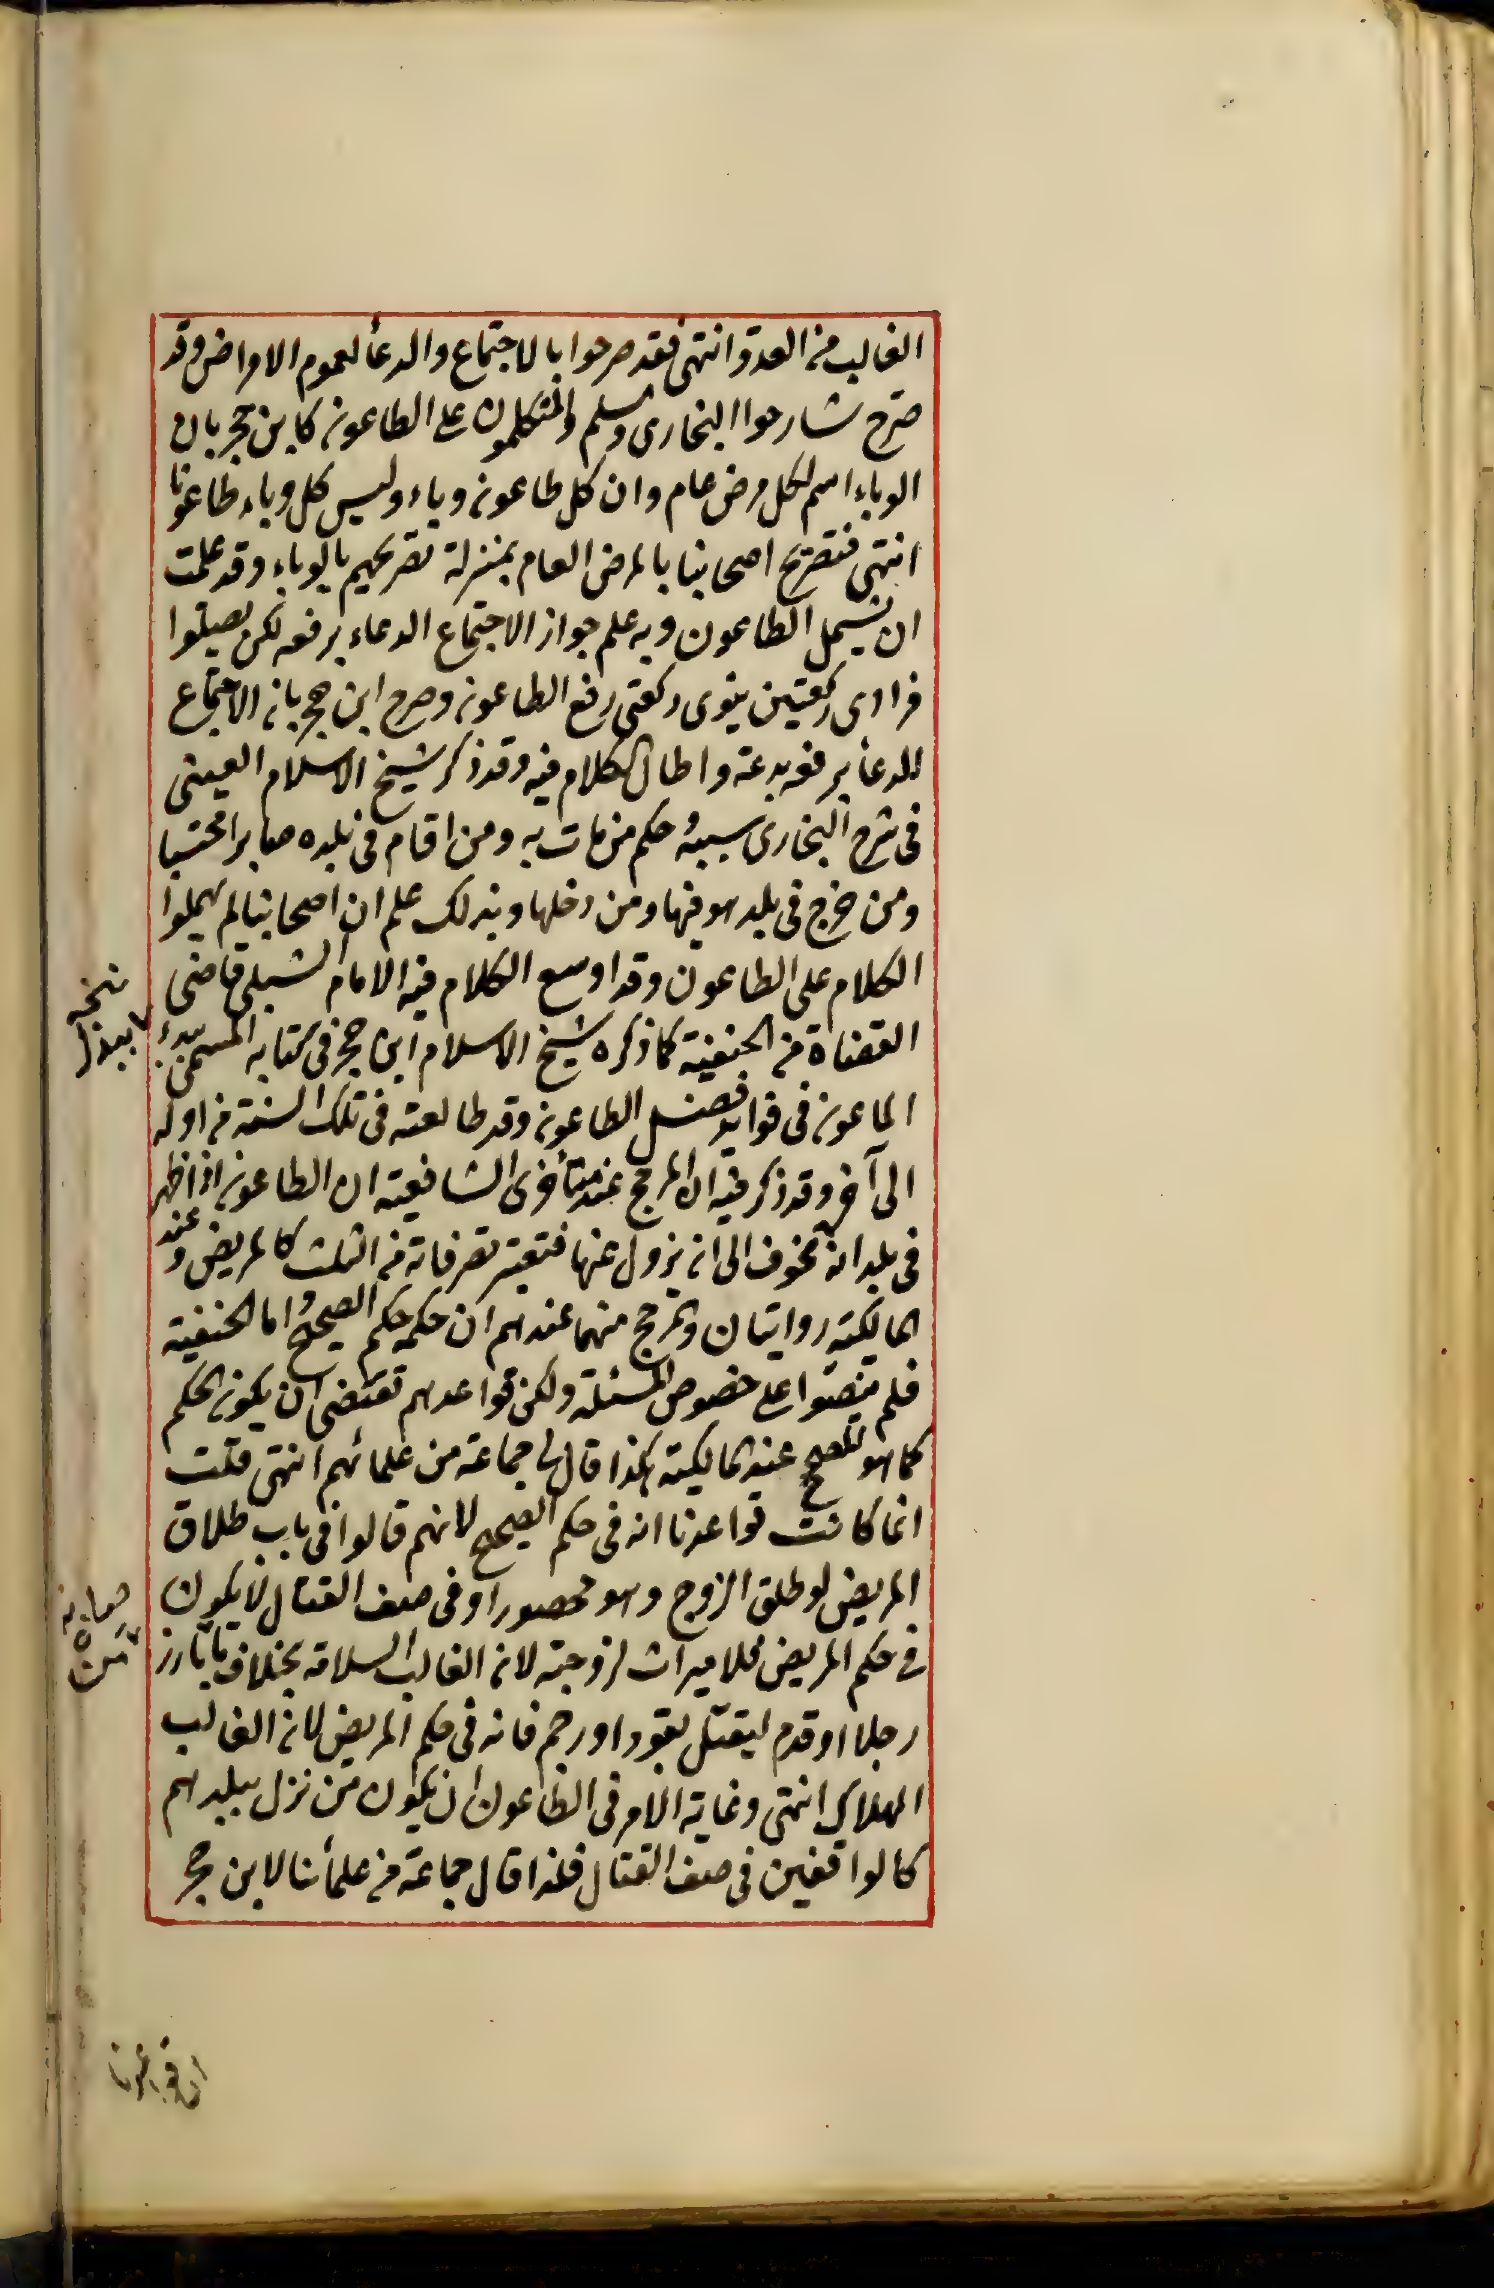 الغالب من العدو انتهى فقد صرحوا بالاجتماع والدعأ لعموم الامراض وقد
صرّح شارحوا البخارى ومسلم والمتكلمون على الطاعون كابن حجر بان
الوباء اسم لكل مرض عام وان كل طاعون وباء وليس كل وباء طاعونا
انتهى فتصريح اصحابنا بالمرض العام بمنزلة تصريحهم بالوباء وقد علمت
ان يشمل الطاعون وبه علم جواز الاجتماع الدعاء برفعه لكن يصلوا
فرادى ركعتين ينوى ركعتى رفع الطاعون وصرح ابن حجر بان الاجتماع
للدعأ برفعه بدعة واطال الكلام فيه وقد ذكر شيخ الاسلام العينى
فى شرح البخارى سببه وحكم من مات به ومن اقام فى بلده صابرا محتسبا
ومن خرج فى بلد هو فيها ومن دخلها وبذلك علم ان اصحابنا لم يهملوا
الكلام على الطاعون وقد اوسع الكلام فيه الامام الشبلى قاضى
القضاة من الحنفية كما ذكره شيخ الاسلام ابن حجر فى كتابه المسمى ببذل
الماعون فى فوايد فضل الطاعون وقد طالعته فى تلك السنة من اوله
الى آخره وقد ذكر فيه ان المرجح عند متأخرى الشافعية ان الطاعون اذا ظهر
فى بلد انه مخوف الى ان يزول عنها فتعتبر تصرفاته من الثلث كالمريض وعند
المالكية روايتان والمرجح منهما عندهم ان حكمه حكم الصحيح واما الحنفية
فلم ينصوا على خصوص المسئلة ولكن قواعدهم تقتضى ان يكون الحكم
كما هو المصحح عند المالكية هكذا قال لى جماعة من علمائهم انتهى قلت
انما كانت قواعدنا انه فى حكم الصحيح لانهم قالوا فى باب طلاق
المريض لو طلق الزوج وهو محصور او فى صف القتال لا يكون
فى حكم المريض فلا ميراث لزوجته لان الغالب السلامة بخلاف ما بارز
رجلا او قدم ليقتل بقود او رجم فانه فى حكم المريض لان الغالب
الهلاك انتهى وغاية الامر فى الطاعون ان يكون من نزل ببلدهم
كالواقفين فى صف القتال فلذا قال جماعة من علمأنا لابن حجر
نسخه
ببذل
من
ان قواعدنا